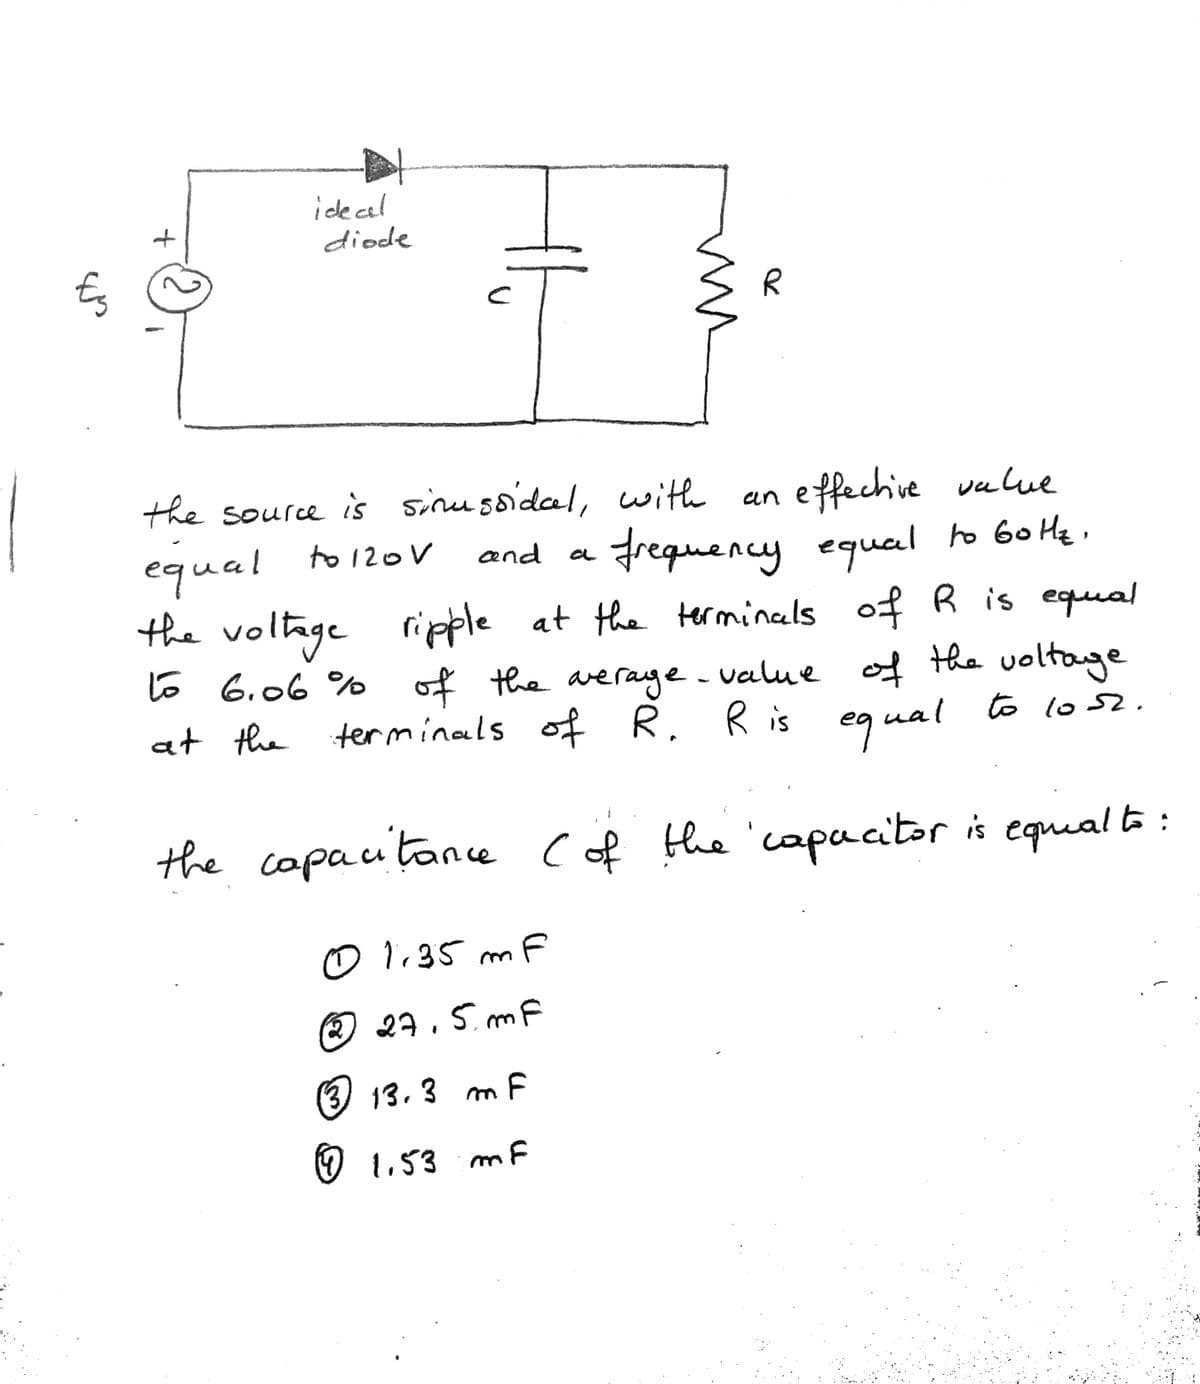 ideal
diode
+
Es
-
C
R
the source is sinussoidal, with an effective value
equal to 120V and a frequency equal to 60 Hz.
the voltage ripple at the terminals of R is equal
to 6.06 % of the average-value of the voltage
at the terminals of R. R is equal to 10 Ω.
the capacitance C of the capacitor is equal to:
① 1.35 mF
② 27.5 mF
③ 13.3 mF
④ 1.53 mF